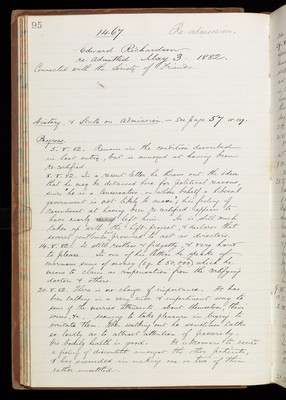 95
1467. Re-admission.
Edward Richardson
re-admitted May 3. 1882.
Connected with the Society of Friends
History & State on Admission — see page 57 &
Progress.
5.5.82. Remains in the condition described
in last entry, but is annoyed at having been
re-certified.
8.5.82. In a recent letter he throws out the idea
that he may be detained here for political reasons
since he is a Conservative in order that a liberal
government is not likely to ; his feeling of
resentment at having been re-certified appears to
have nearly left him. He is still much
taken up with the Life project, & desires that
several gentlemen be to act as directors.
14.5.82. Is still restless & fidgetty, & very hard
to please. In one of his letters he speaks of
enormous sums of money (e.g. £50,000) which he
means to claim as compensation from the certifying
doctor & others.
20.5.82. There is no change of importance. He has
been talking in a very rude & impertinent way to
some of the married attendants about themselves, their
wives, &c., seeming to take pleasure in trying to
irritate them. When walking out he sometimes talks
so loudly as to attract attention of passers by.
His bodily health is good. He endeavours to excite
a feeling of discontent amongst the other patients,
& has succeeded in making one or two of them
rather unsettled.